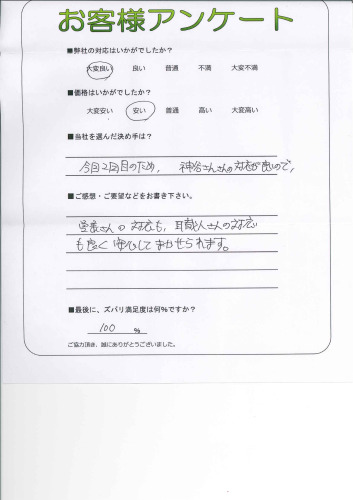 お客様アンケート
■弊社の対応はいかがでしたか？
大変良い 良い 普通 不満 大変不満
■価格はいかがでしたか？
大変安い 安い 普通 高い 大変高い
■当社を選んだ決め手は？
今回2回目のため、 神谷さんの対応が良いので、
■ご感想・ご要望などをお書き下さい。
営業さんの対応も、職人さんの対応
も良く安心してまかせられます。
■最後に、ズバリ満足度は何%ですか？
100 %
ご協力頂き、誠にありがとうございました。